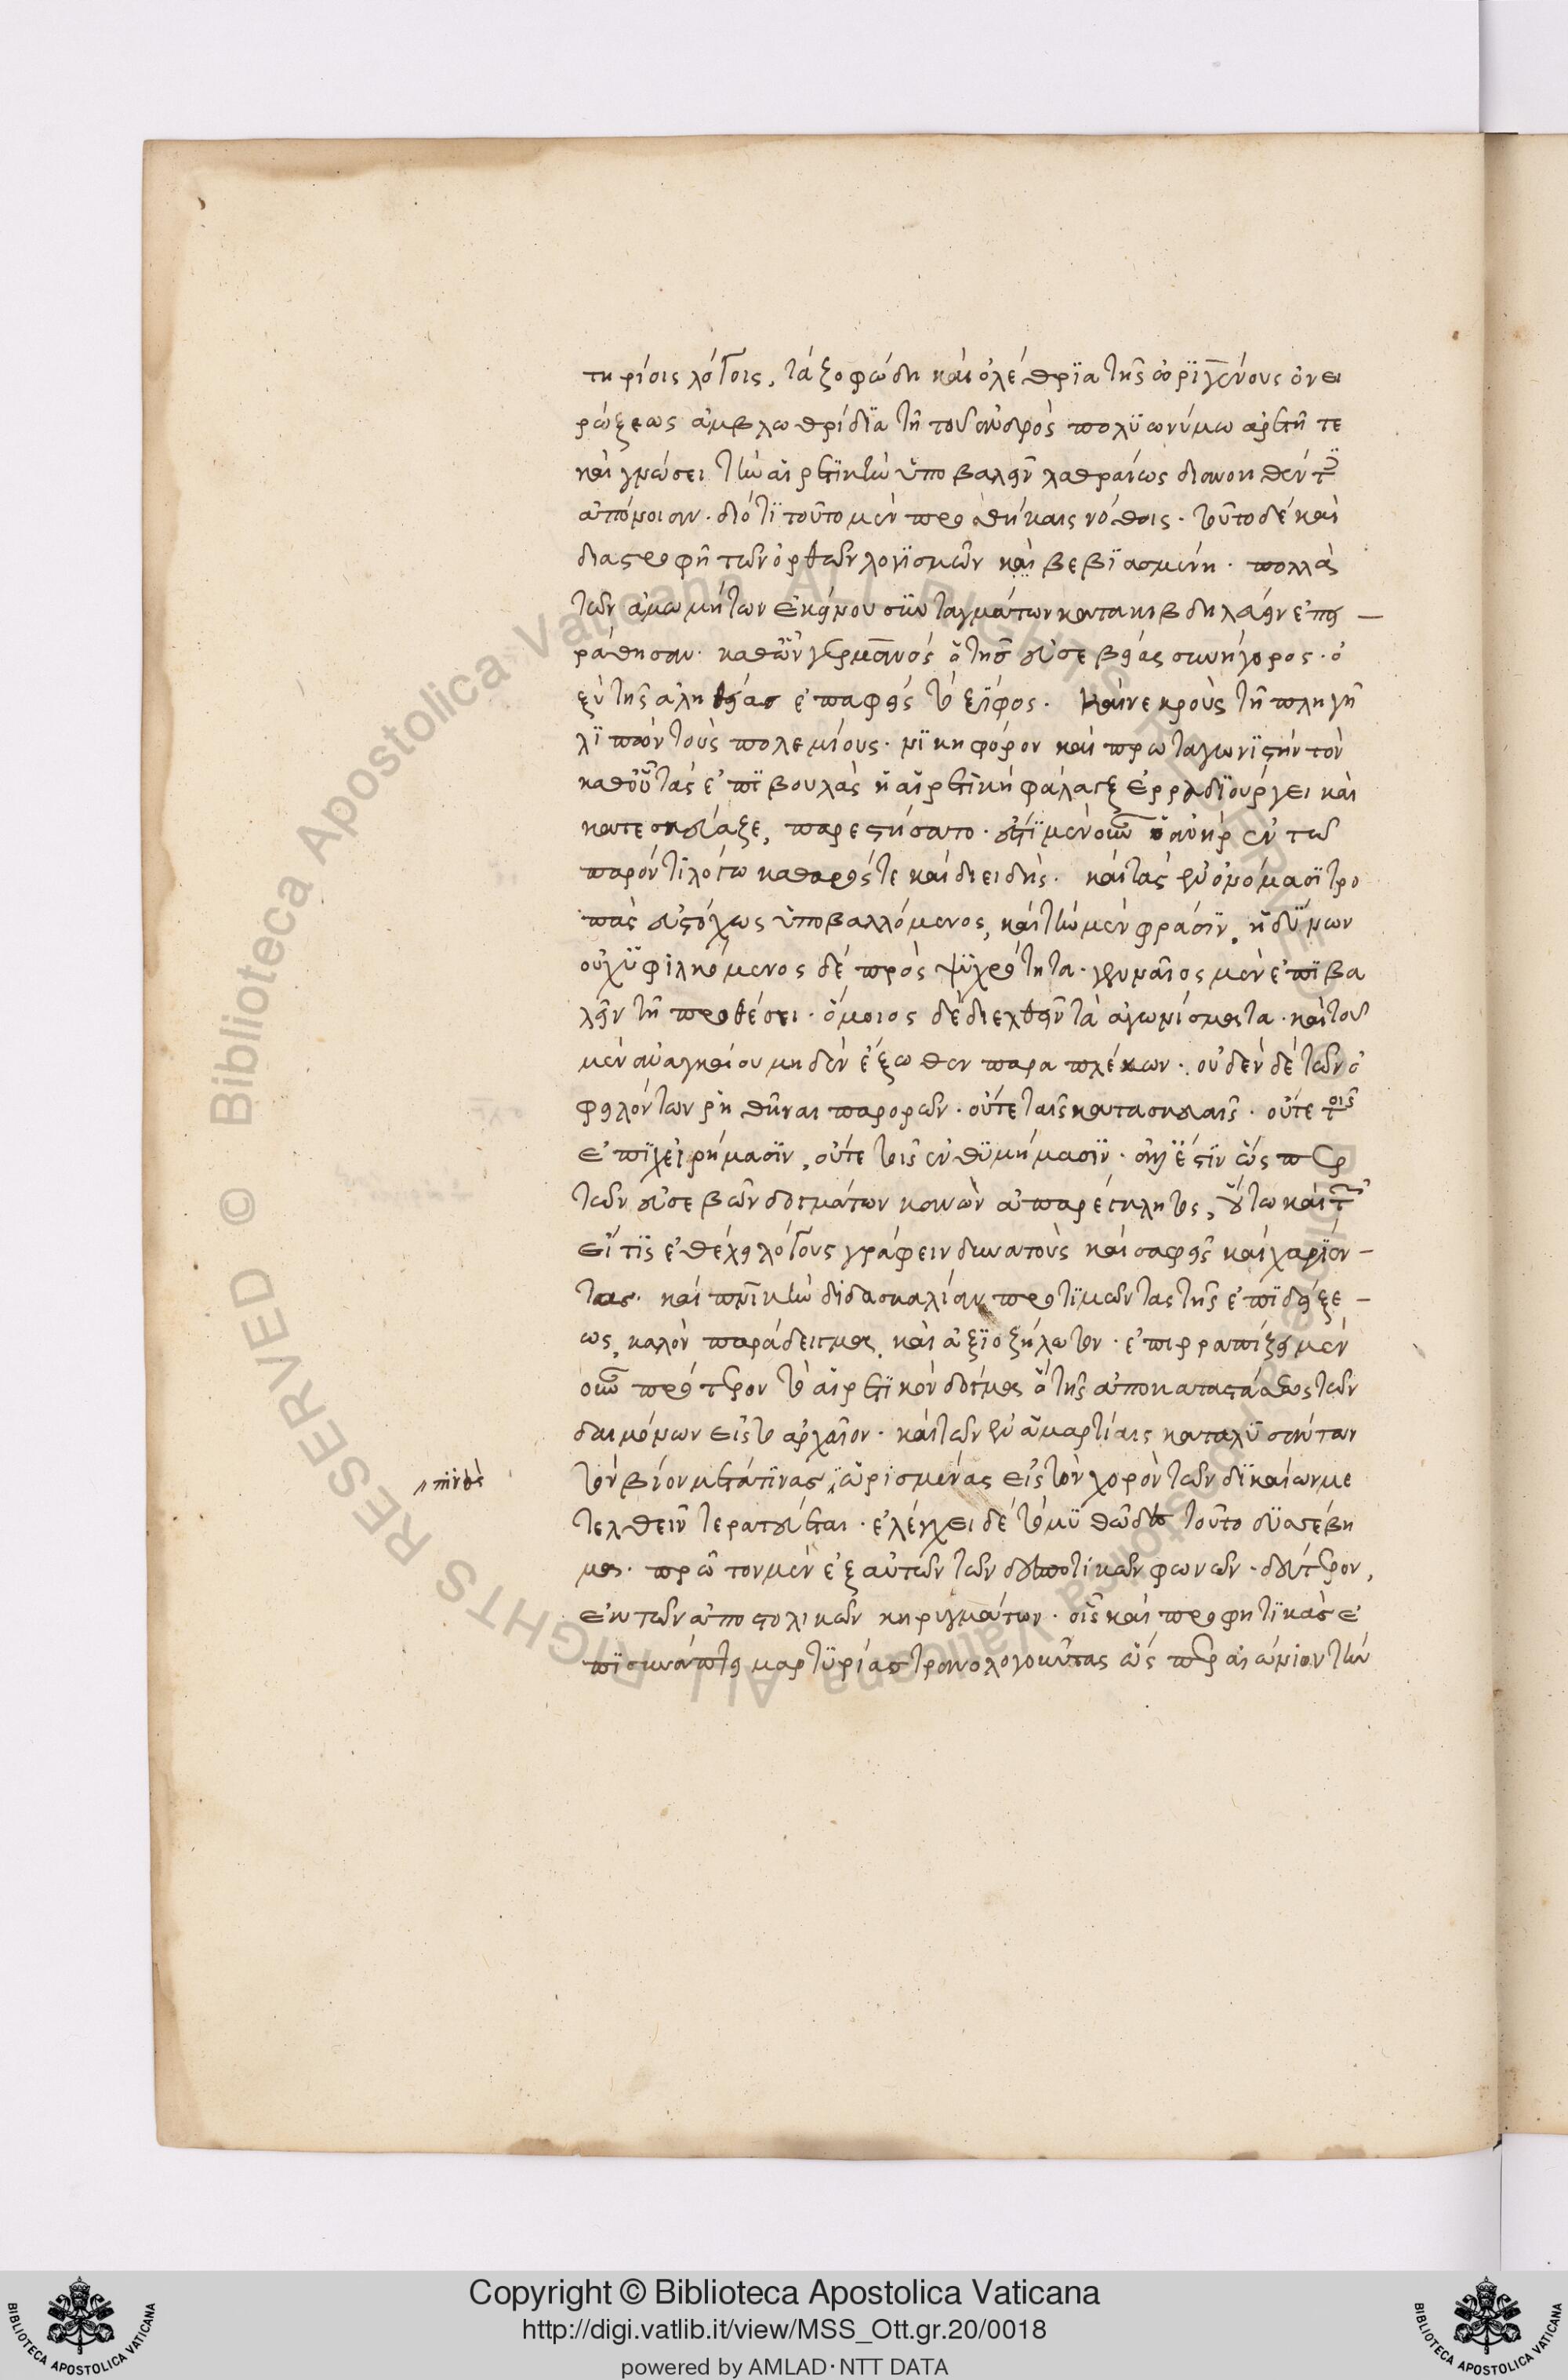 τηρίοις λόγοις, τὰ ζοφώδη καὶ ὀλέθρϊα τῆς ὠρϊγένους ὀνει
ρώξεως ἀμβλωθρίδϊα τῆ τοῦ ἀνδρὸς πολϋωνύμω ἀρετῆ τε
καὶ γνώσει τῶ αἱρετϊκῶ ὑποβαλεῖν λαθραίως διανοηθέντων
ἀπόνοιαν. διότϊ τοῦτο μὲν προσθήκαις νόθοις. τοῦτο δὲ καὶ
διαστροφῆ τῶν ὀρθῶν λογϊσμῶν καὶ βεβϊασμένη. πολλὰς
τῶν ἀμωμήτων ἐκείνου σϋνταγμάτων κατακιβδηλεύειν ἐπει
ράθησαν. καθ' ὧν γερμανὸς ὁ τῆς εὐσεβείας συνήγορος. ὀ
ξὺ τῆς ἀληθείας ἐπαφεὶς τὸ ξίφος. καὶ νεκροὺς τῆ πληγῆ
λϊπὼν τοὺς πολεμίους. νϊκηφόρον καὶ πρωταγωνϊστὴν τὸν
καθ' οὗ τὰς ἐπϊβουλὰς ἡ αἱρετϊκὴ φάλαγξ ἐρραδϊούργει καὶ
κατεσκεύαζε, παρεστήσατο. ἔστϊ μὲν οὖν ὁ ἀνὴρ ἐν τῶ
παρόντϊ λόγω καθαρός τε καὶ διειδής. καὶ τὰς ἐν ὀνόμασϊ τρο
πὰς εὐστόχως ὑποβαλλόμενος, καὶ τὴν μὲν φράσϊν, ἡδύνων
οὐχ ὑφιλκόμενος δὲ πρὸς ψϋχρότητα. γενναῖος μὲν ἐπϊβα
λεῖν τῆ προθέσει. ὅμοιος δὲ διεχθεῖν τὰ ἀγωνίσματα. καὶ τοῦ
μὲν ἀναγκαίου μηδὲν ἔξωθεν παραπλέκων. οὐδὲν δὲ τῶν ὀ
φειλόντων ῥηθῆναι παρορῶν. οὔτε ταῖς κατασκευαῖς. οὔτε τοῖς
ἐπϊχειρήμασϊν, οὔτε τοῖς ἐνθϋμήμασϊν. καὶ ἔστϊν ὥσπερ
τῶν εὐσεβῶν δογμάτων κανὼν ἀπαρέγκλητος, οὕτω καὶ τοῦ
εἴ τϊς ἐθέλει λόγους γράφειν δυνατοὺς καὶ σαφεῖς καὶ χαρίεν
τας. καὶ πρακτικὴν διδασκαλίαν προτϊμῶντας τῆς ἐπϊδείξε
ως, καλὸν παράδειγμα, καὶ ἀξϊοζήλωτον. ἐπιρραπίζει μὲν
οὖν πρότερον τὸ αἱρετϊκὸν δόγμα ὃ τῆς ἀποκαταστάσεως τῶν
δαιμόνων εἰς τὸ ἀρχαῖον. καὶ τῶν ἐν ἁμαρτίαις καταλϋσάντων
τὸν βίον μετά τϊνας, ὡρισμένας εἰς τὸν χορὸν τῶν δϊκαίων με
τελθεῖν τερατεύεται. ἐλέγχει δὲ τὸ μϋθῶδες τοῦτο δϋσσέβη
μα. πρῶτον μὲν ἐξ αὐτῶν τῶν δεσποτικῶν φωνῶν. δεύτερον,
ἐκ τῶν ἀποστολικῶν κηρυγμάτων. οἷς καὶ προφητϊκὰς ἐ
πϊσυνάπτει μαρτϋρίας τρανολογούσας ὥσπερ αἰώνιον τὴν